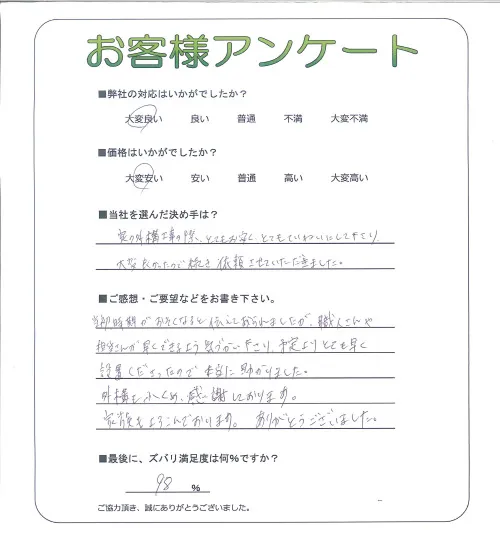 お客様アンケート
■弊社の対応はいかがでしたか？
大変良い 良い 普通 不満 大変不満
■価格はいかがでしたか？
大変安い 安い 普通 高い 大変高い
■当社を選んだ決め手は？
家の外構工事の際、とてもお安く、とてもていねいにして下さり
大変良かったので 依頼させていただきました。
■ご感想・ご要望などをお書き下さい。
時期がおそくなると伝えておられましたが、職人さんや
担当さんが早くできるよう気づかい下さり、予定よりとても早く
設置くださったので本当に助かりました。
外構もふくめ、感謝しております。
家族もよろこんでおります。 ありがとうございました。
■最後に、ズバリ満足度は何％ですか？
98 ％
ご協力頂き、誠にありがとうございました。